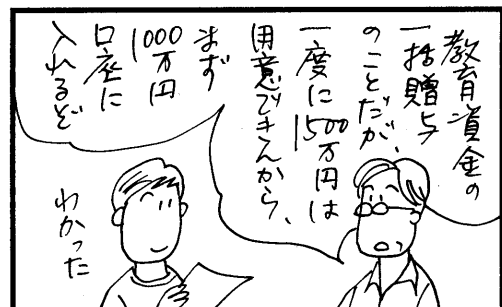 教育資金の
一括贈与
のことだが、
一度に1500万円は
用意できんから、
まず
1000
万円
口座に
入れるぞ
わかった